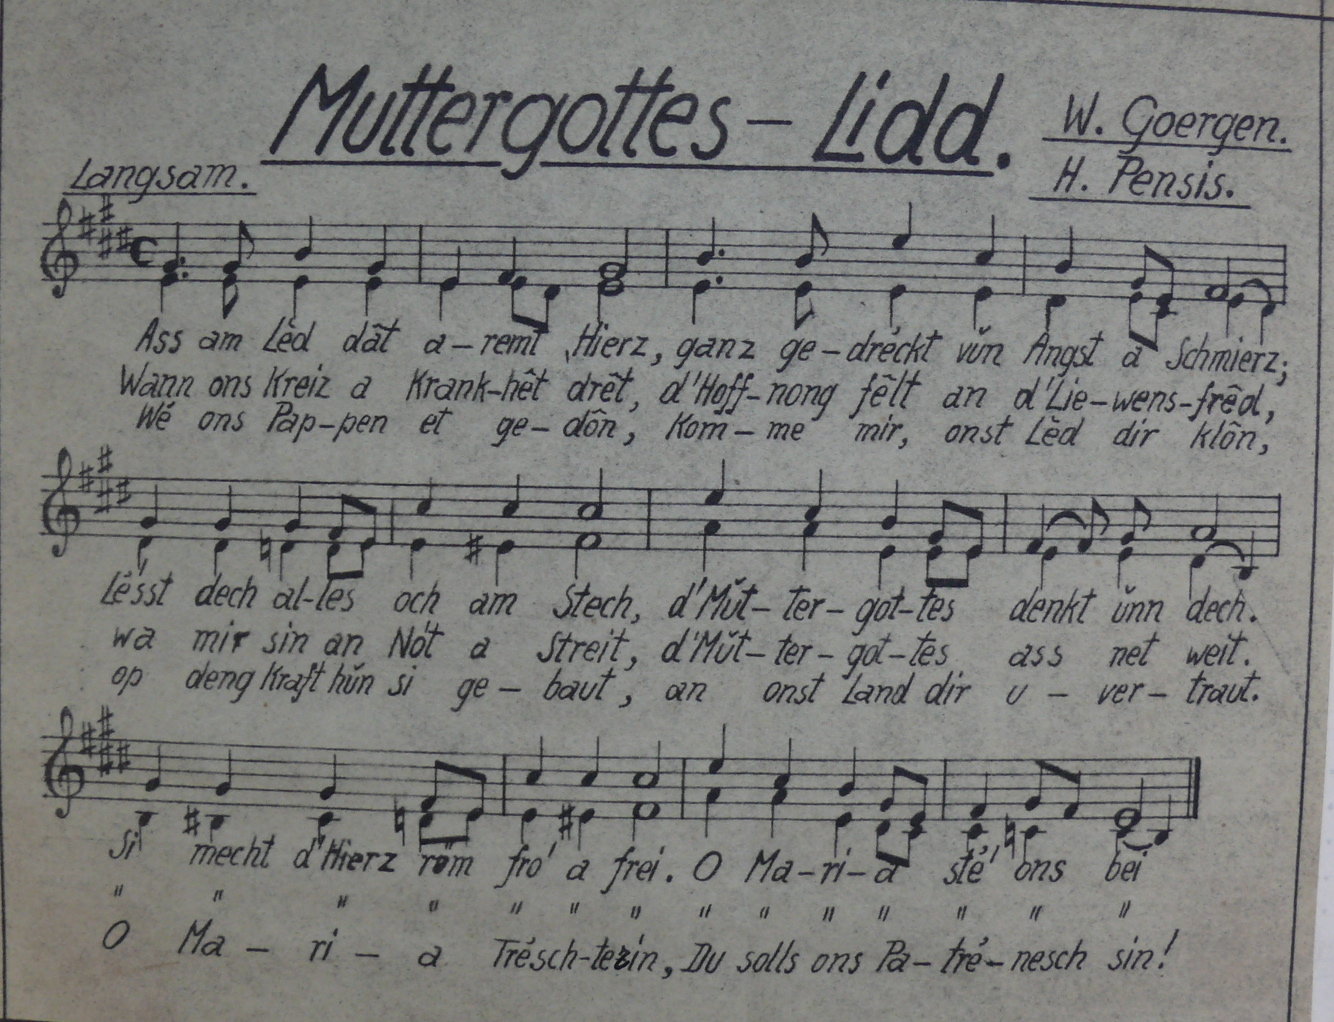 Muttergottes – Lidd.
W. Goergen.
H. Pensis.
Langsam.
Ass am Lèd dât a–remt Hierz, ganz ge–dréckt vŭn Angst a Schmierz;
Wann ons Kreiz a Krank–hêt drêt, d'Hoff–nong fêlt an d'Lie–wens–frêd,
Wé ons Pap–pen et ge–dôn, Kom–me mir, onst Lèd dir klôn,
Lésst dech al–les och am Stech, d'Mŭt–ter–got–tes denkt ŭnn dech.
wa mir sin an Nôt a Streit, d'Mŭt–ter–got–tes ass net weit.
op deng Kraft hŭn si ge–baut, an onst Land dir u–ver–traut.
Si mecht d'Hierz rŏm fro' a frei. O Ma–ri–a sté' ons bei
" " " " " " " " " " " " " "
O Ma–ri–a Trésch–terin, Du solls ons Pa–tré–nesch sin!